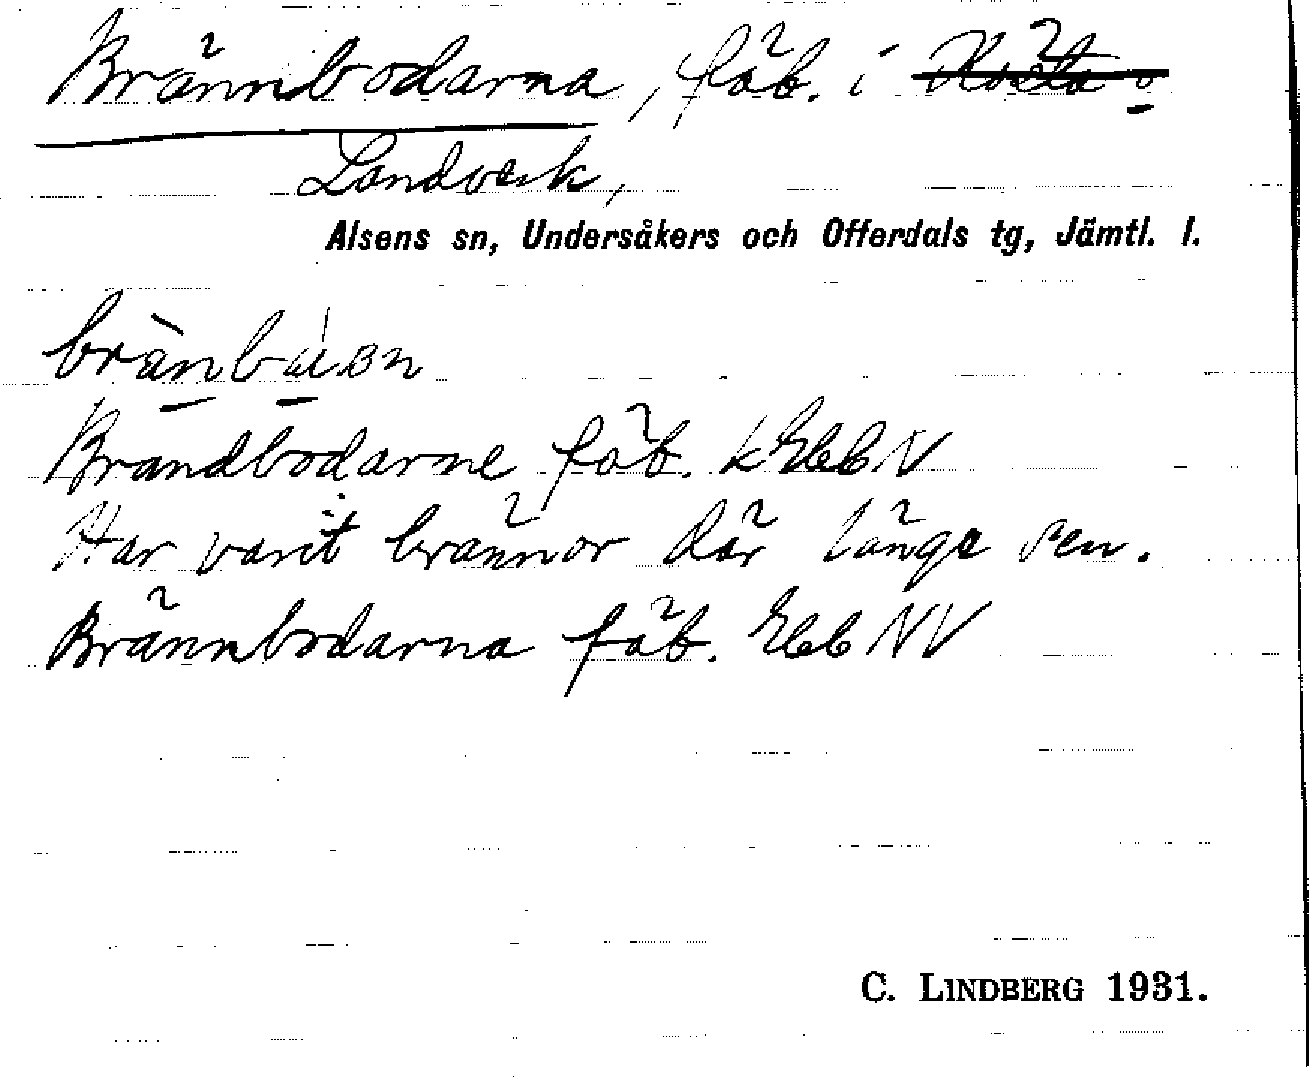 Brännbodarna, fäb. i
Landverk,
Alsens sn, Undersåkers och Offerdals tg, Jämtl. l.
Brandbodarne fäb. kEbbN
Har varit brännor där länge sen.
Brännbodarna fäb. EbbNV
C. LINDBERG 1931.